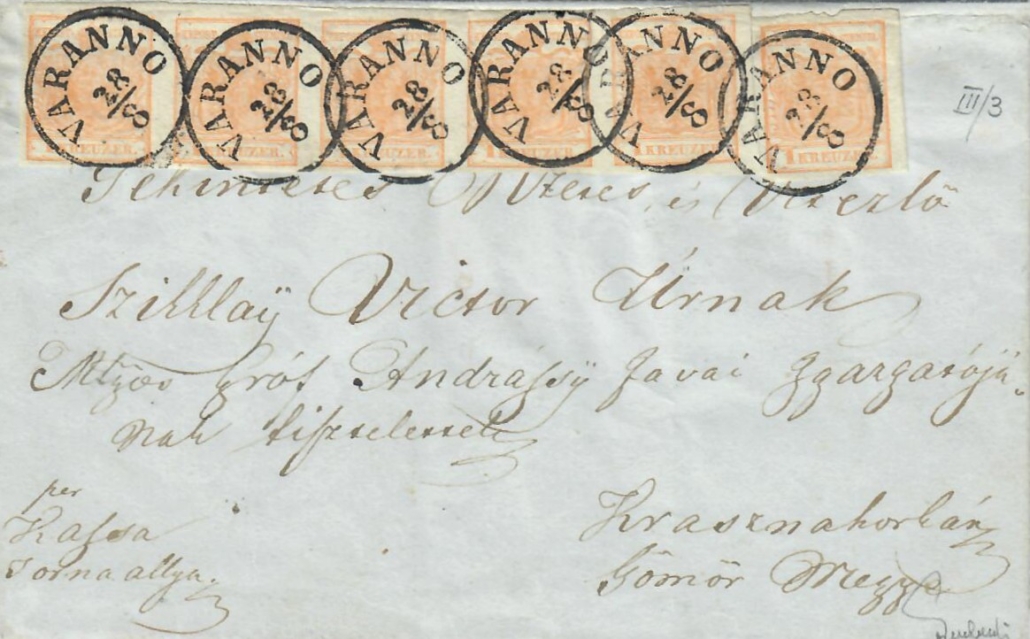 VARANNO 28/8 VARANNO 28/8 VARANNO 28/8 VARANNO 28/8 VARANNO 28/8 VARANNO 28/8
KREUZER. KREUZER. KREUZER. 1 KREUZER. 1 KREUZER. 1 KREUZER.
III/3
Tekintetes és Vitézlő
Szilllaÿ Victor Úrnak
Gróf Andrássÿ Javai
nak tisztelettel
per
Kassa
Tornaallya.
Krasznahorkán
Gömör Megye